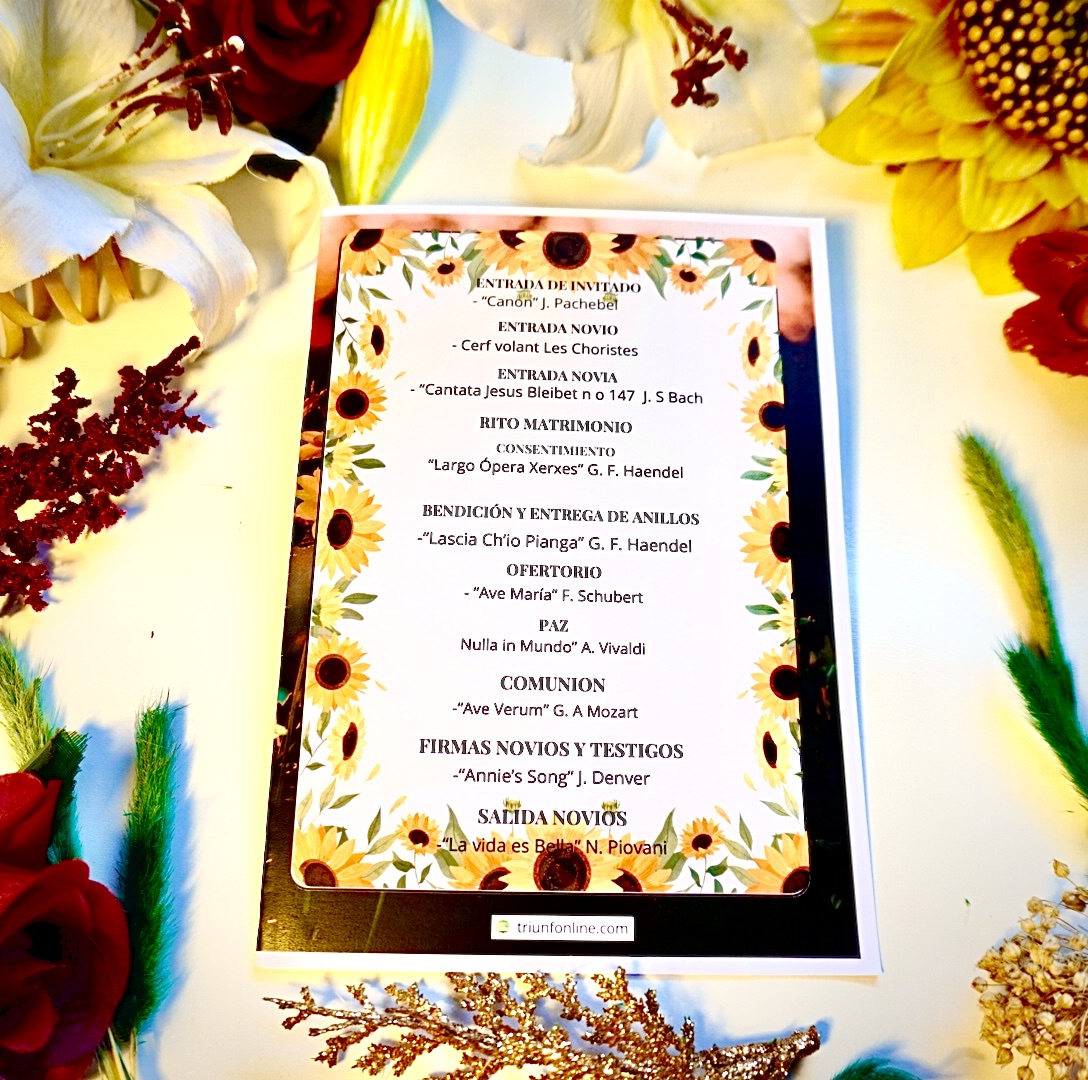 ENTRADA DE INVITADO
- “Canon” J. Pachebel
ENTRADA NOVIO
- Cerf volant Les Choristes
ENTRADA NOVIA
- “Cantata Jesus Bleibet n o 147 J. S Bach
RITO MATRIMONIO
CONSENTIMIENTO
“Largo Ópera Xerxes” G. F. Haendel
BENDICIÓN Y ENTREGA DE ANILLOS
-“Lascia Ch’io Pianga” G. F. Haendel
OFERTORIO
- “Ave María” F. Schubert
PAZ
Nulla in Mundo” A. Vivaldi
COMUNION
-“Ave Verum” G. A Mozart
FIRMAS NOVIOS Y TESTIGOS
-“Annie’s Song” J. Denver
SALIDA NOVIOS
-“La vida es Bella” N. Piovani
triunfonline.com